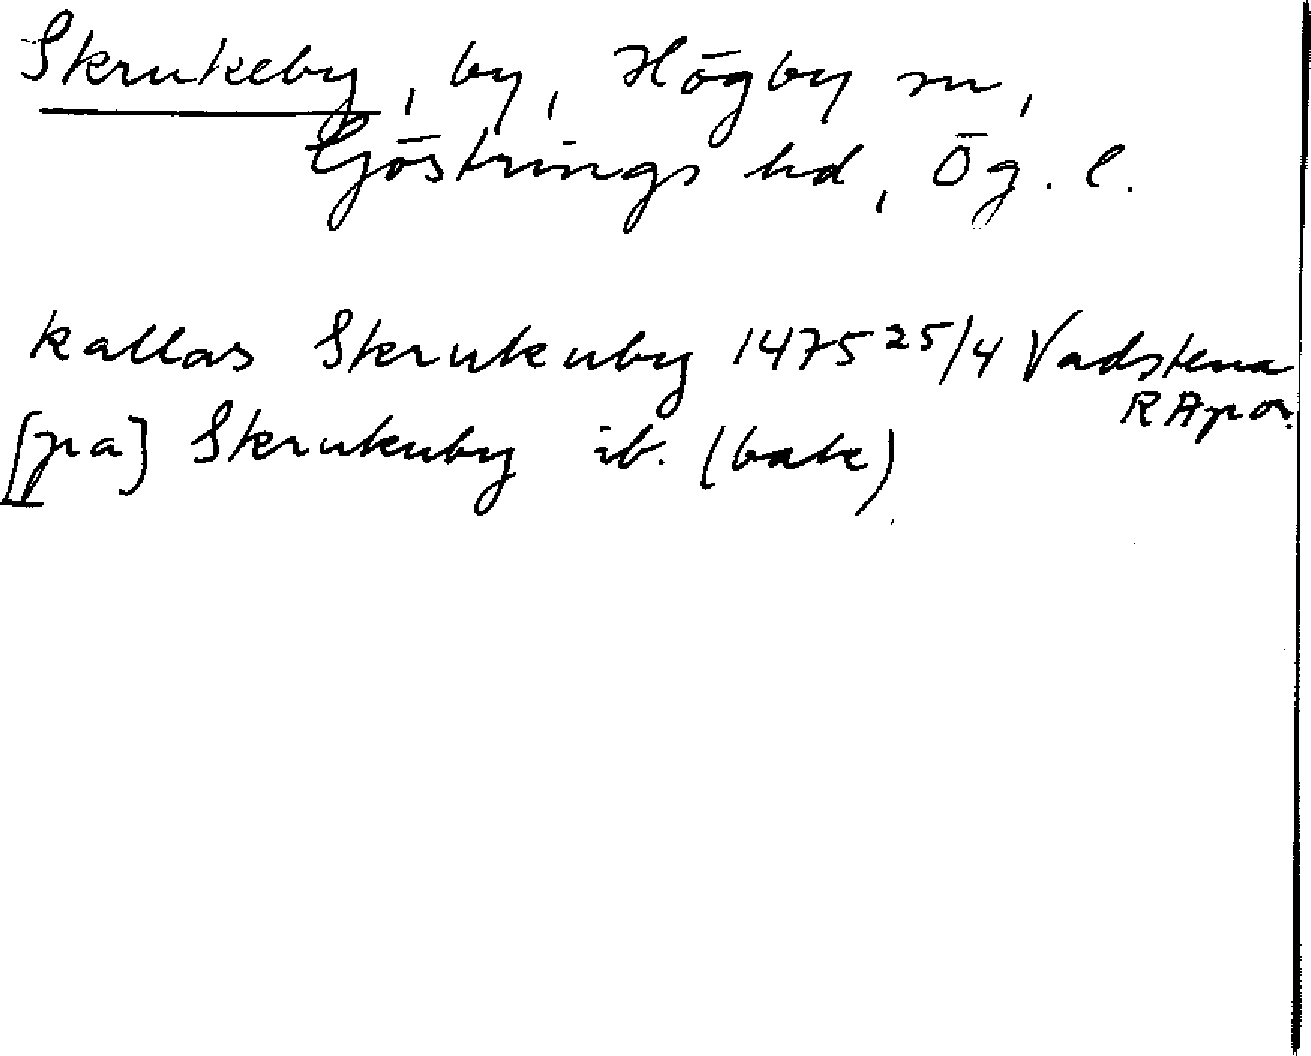 Skrukeby, by, Högby sn,
Göstrings hd, Ög. l.
kallas Skrukuby 1475 25/4 Vadstena
RApor.
[pa] Skrukuby ib. (bak)